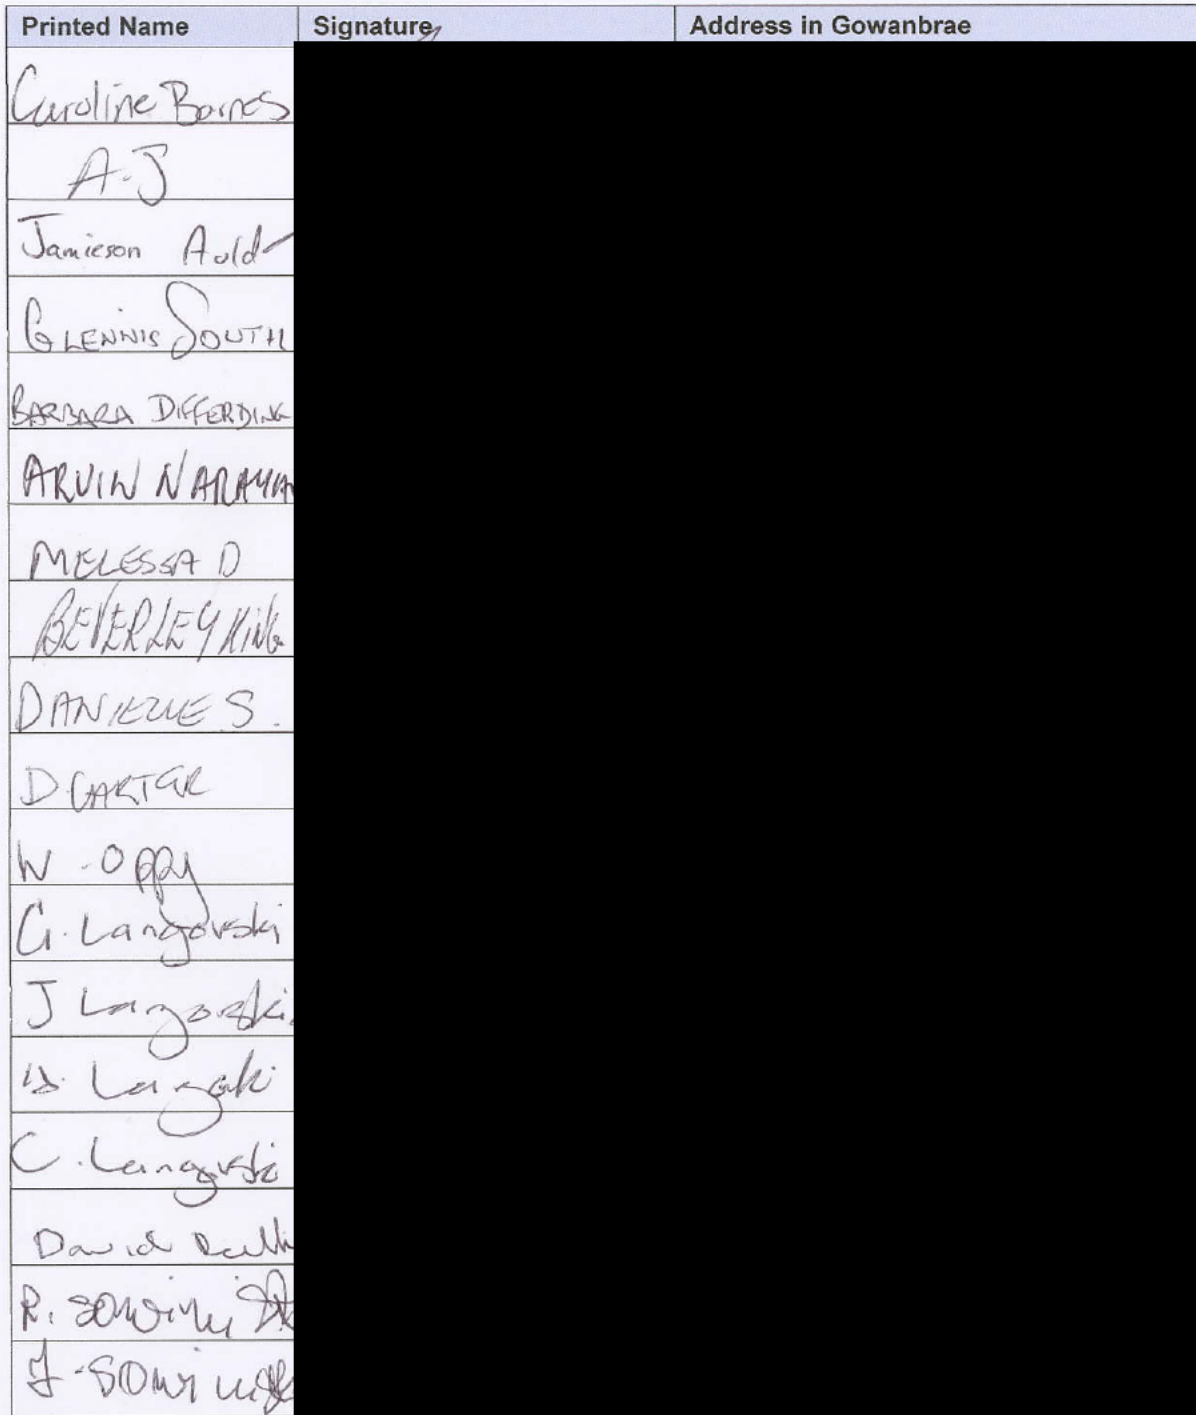 Printed Name Signature Address in Gowanbrae
Caroline Barnes
A-J
Jamieson Auld
GLENNIS SOUTH
BARBARA DIFFERDING
ARVIN NARAYAN
MELESSA D
BEVERLEY KING
DANIELLE S.
D. CARTER
W - Oppy
G. Langovski
J Langovski
Langovski
C. Langovski
David
R.
J -